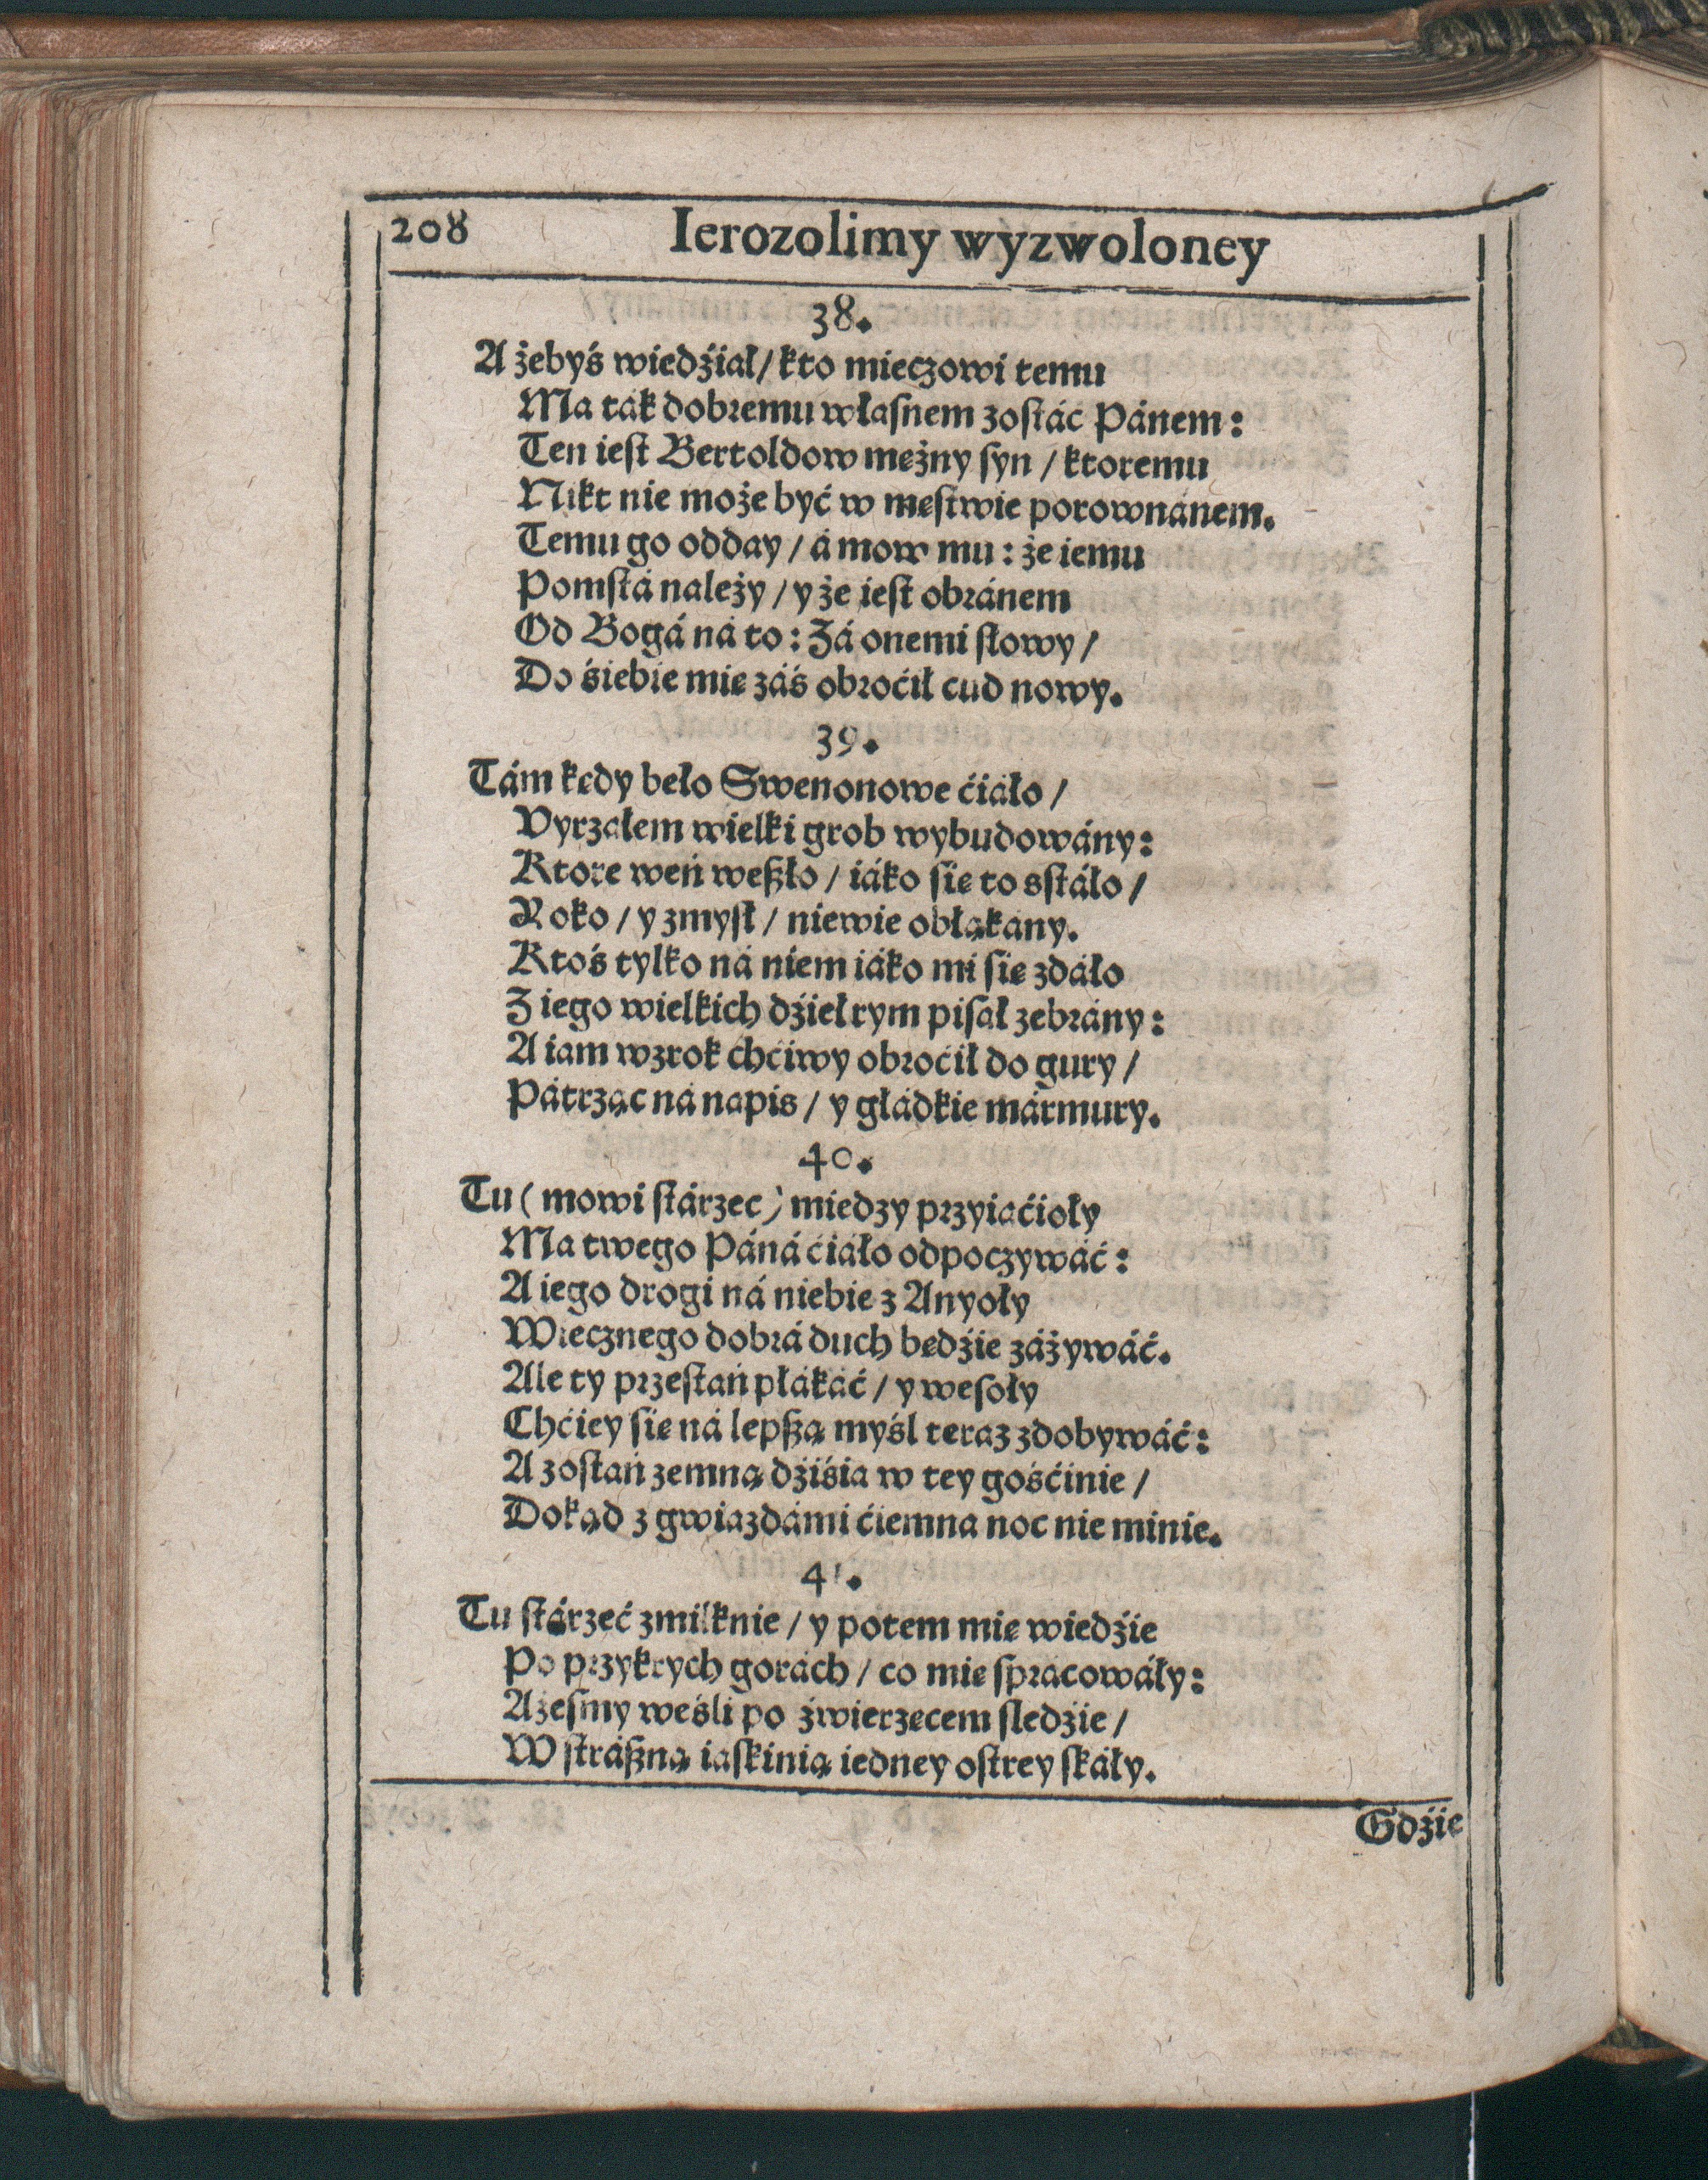 208 Ierozolimy wyzwoloney
38.
A żebyś wiedźiał / kto mieczowi temu
Ma ták dobremu własnem zostáć Pánem:
Ten iest Bertoldow mężny syn / ktoremu
Nikt nie może być w męstwie porownánem.
Temu go odday / á mow mu: że iemu
Pomstá należy / y że iest obránem
Od Bogá ná to: Zá onemi słowy /
Do śiebie mię záś obroćił cud nowy.
39.
Tám kędy beło Swenonowe ćiáło /
Vyrzałem wielki grob wybudowány:
Ktore weń weszło / iáko się to sstáło /
Roko / y zmysł / niewie obłąkány.
Ktoś tylko ná niem iáko mi się zdáło
Z iego wielkich dźieł rym pisał zebrány:
A iam wzrok chćiwy obroćił do gury /
Pátrząc ná napis / y głádkie mármury.
40.
Tu (mowi stárzec) miedzy przyiaćioły
Ma twego Páná ćiáło odpoczywáć:
A iego drogi ná niebie z Anyoły
Wiecznego dobrá duch będźie záżywáć.
Ale ty przestań płákáć / y wesoły
Chćiey się ná lepszą myśl teraz zdobywáć:
A zostań zemną dźiśia w tey gośćinie /
Dokąd z gwiazdámi ćiemna noc nie minie.
41.
Tu stárzeć zmilknie / y potem mię wiedźie
Po przykrych gorách / co mię sprácowáły:
Ażesmy weśli po źwierzęcem sledźie /
W strászną iaskinią iedney ostrey skáły.
Gdźie